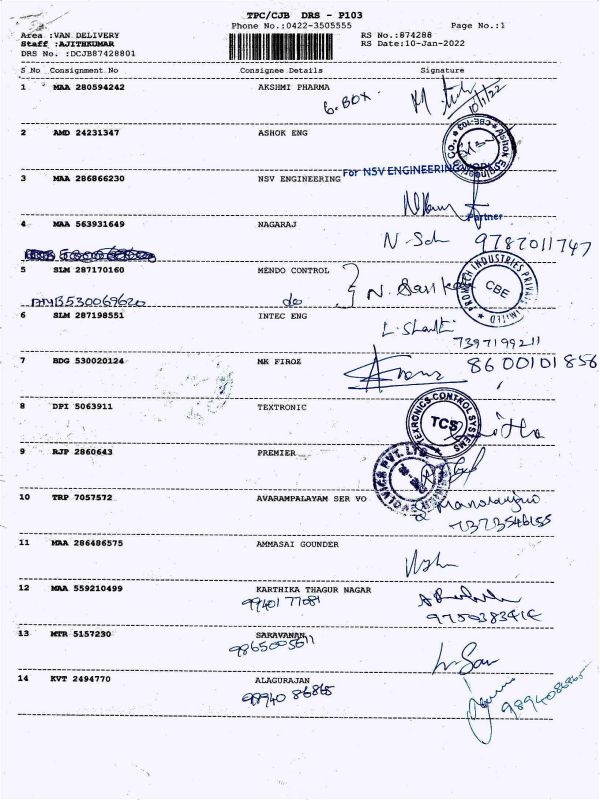 TPC/CJB DRS - P103
Phone No.:0422-3505555 Page No.:1
Area :VAN DELIVERY RS No.:874288
Staff :AJITHKUMAR RS Date:10-Jan-2022
DRS No. :DCJB87428801
S No Consignment No Consignee Details Signature
1 MAA 280594242 AKSHMI PHARMA
6-BOX. 10/1/22
2 AMD 24231347 ASHOK ENG
For NSV ENGINEERING WORK
3 MAA 286866230 NSV ENGINEERING
Partner
4 MAA 563931649 NAGARAJ
N-Sch 9787011747
5 SLM 287170160 MENDO CONTROL
PROMECH INDUSTRIES PRIVATE LIMITED
CBE
AMB530069620 do
6 SLM 287198551 INTEC ENG
7397199211
7 BDG 530020124 MK FIROZ
8600101856
8 DPI 5063911 TEXTRONIC
TEXRONICS CONTROL SYSTEMS
TCS
9 RJP 2860643 PREMIER
10 TRP 7057572 AVARAMPALAYAM SER VO
7373546155
11 MAA 286486575 AMMASAI GOUNDER
12 MAA 559210499 KARTHIKA THAGUR NAGAR
9940177081
13 MTR 5157230 SARAVANAN
14 KVT 2494770 ALAGURAJAN
9894086865
9894086865